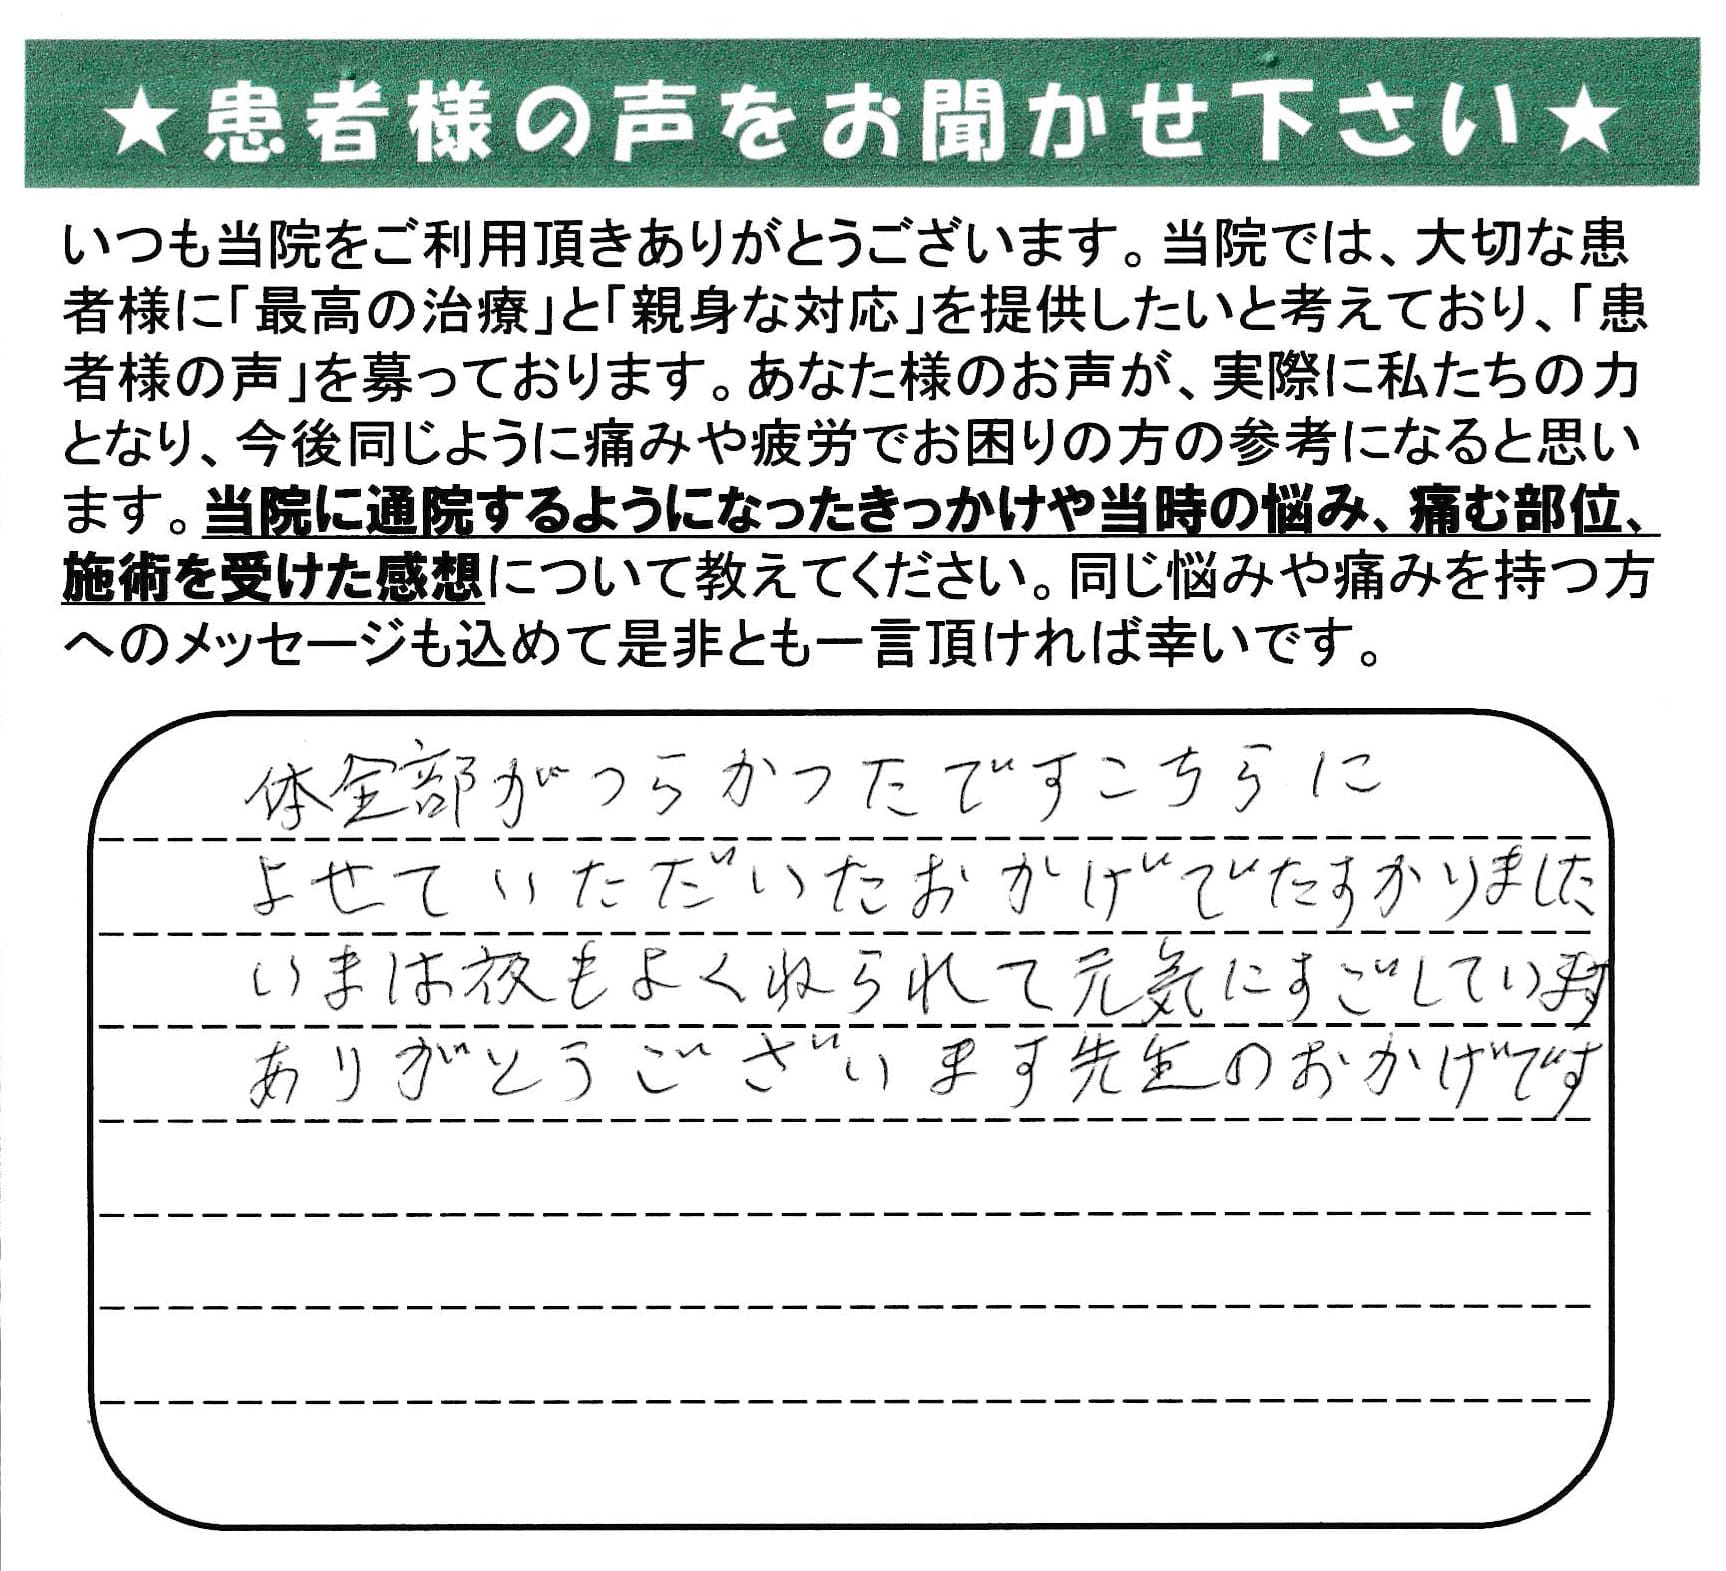 ★患者様の声をお聞かせ下さい★
いつも当院をご利用頂きありがとうございます。当院では、大切な患
者様に「最高の治療」と「親身な対応」を提供したいと考えており、「患
者様の声」を募っております。あなた様のお声が、実際に私たちの力
となり、今後同じように痛みや疲労でお困りの方の参考になると思い
ます。当院に通院するようになったきっかけや当時の悩み、痛む部位、
施術を受けた感想について教えてください。同じ悩みや痛みを持つ方
へのメッセージも込めて是非とも一言頂ければ幸いです。
体全部がつらかったですこちらに
よせていただいたおかげでたすかりました
いまは夜もよくねられて元気にすごしています
ありがとうございます先生のおかげです